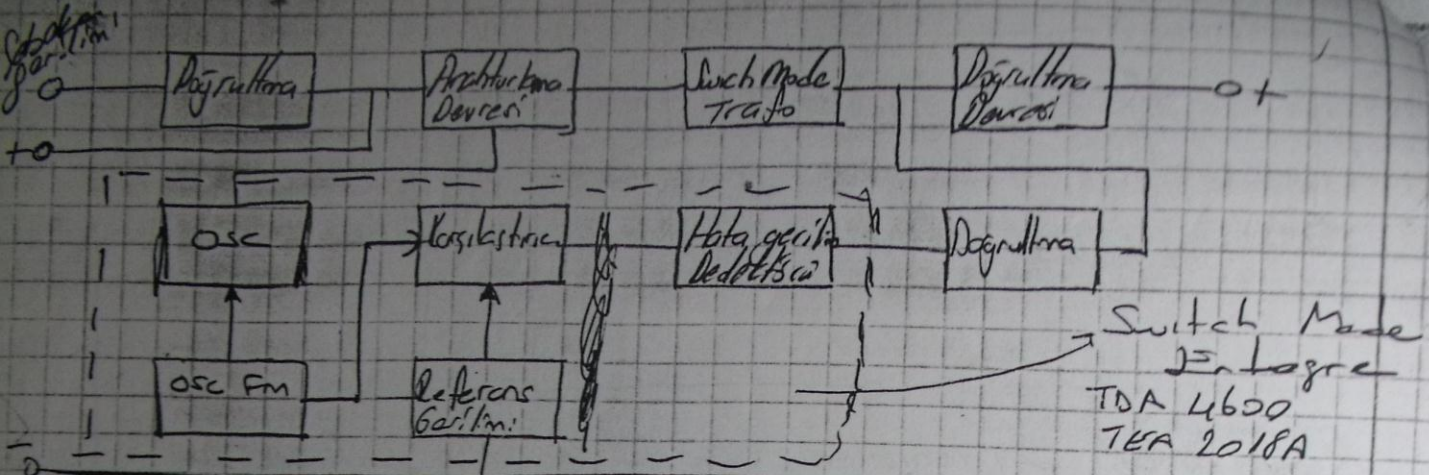 Şebeke
Gerilimi
Doğrultma
Anahtarlama
Devresi
Swich Mode
Trafo
Doğrultma
Devresi
+
+
OSC
Karşılaştırıcı
Hata gerilim
Dedektörü
Doğrultma
OSC Fm
Referans
Gerilimi
Switch Mode
Entegre
TDA 4600
TEA 2018A
-